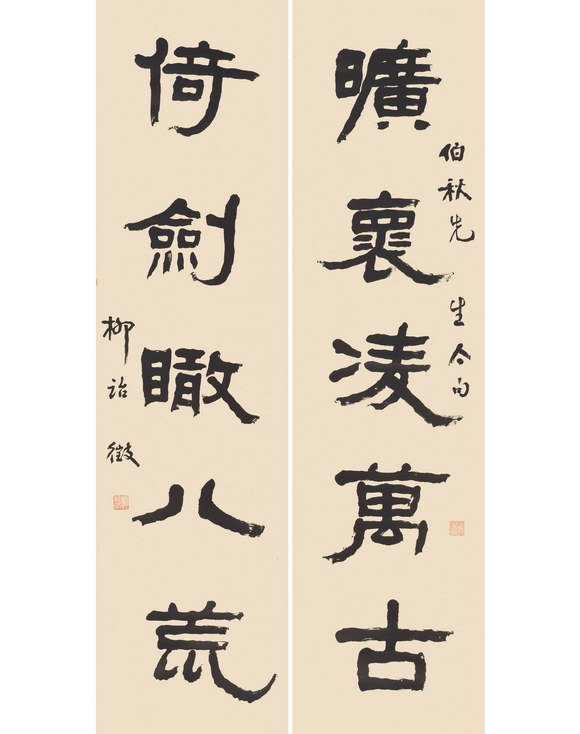 伯秋先生令句
曠褱凌萬古
倚劍瞰八荒
柳詒徵